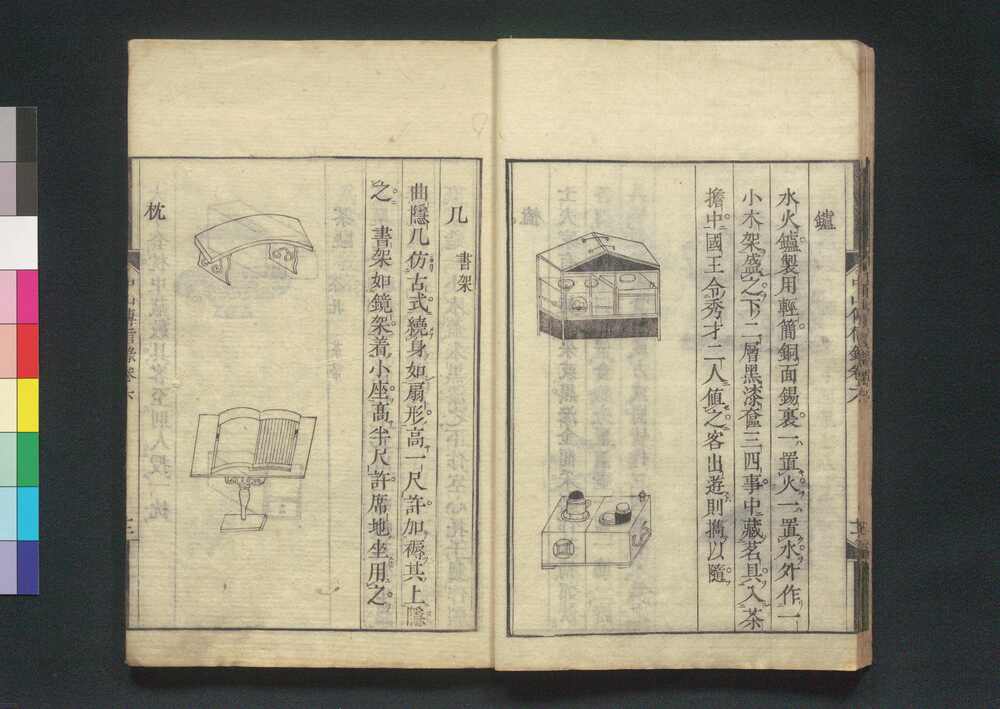 鑪
水火鑪製用輕簡銅面錫裏一置火一置水外作一
小木架盛之下二層黑漆奩三四事中藏茗具入茶
擔中國王令秀才二人値之客出遊則擕以隨
几 書架
曲隱几仿古式繞身如扇形高一尺許加褥其上隱
之 書架如鏡架着小座高半尺許席地坐用之
枕